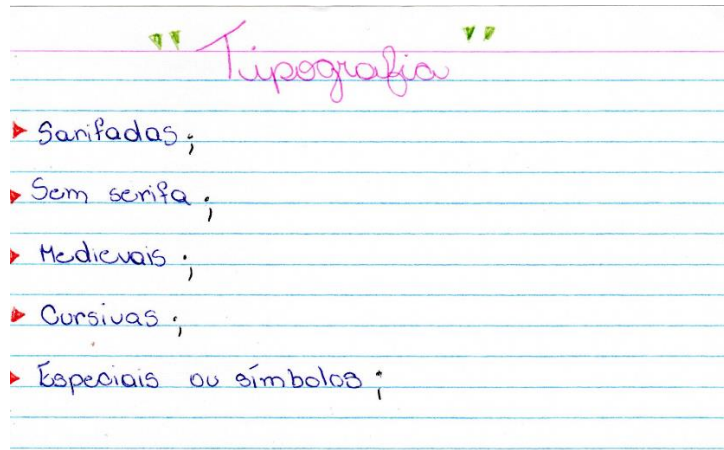 "Tipografia"
Sarifadas;
Sem serifa;
Medievais;
Cursivas;
Especiais ou símbolos;